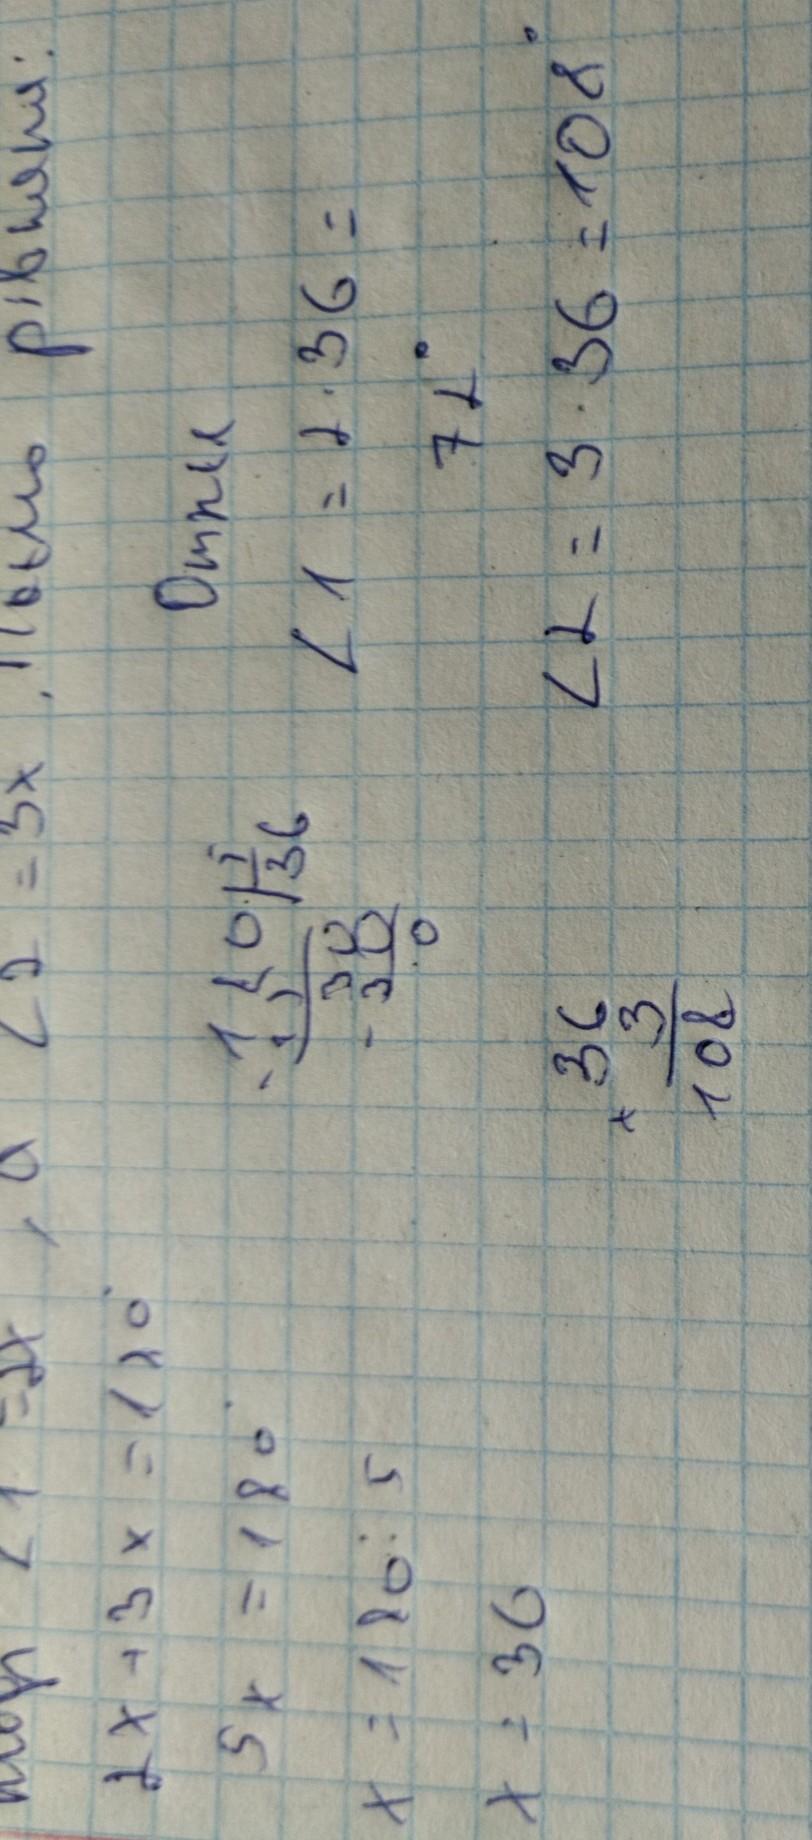 ∠1 = 2x, а ∠2 = 3x, Маємо рівняння:
2x + 3x = 180
5x = 180
x = 180 : 5
x = 36
-180 | 5
15 | 36
30
-30
0
Отже
∠1 = 2 · 36 =
72°
36
× 3
108
∠2 = 3 · 36 = 108°